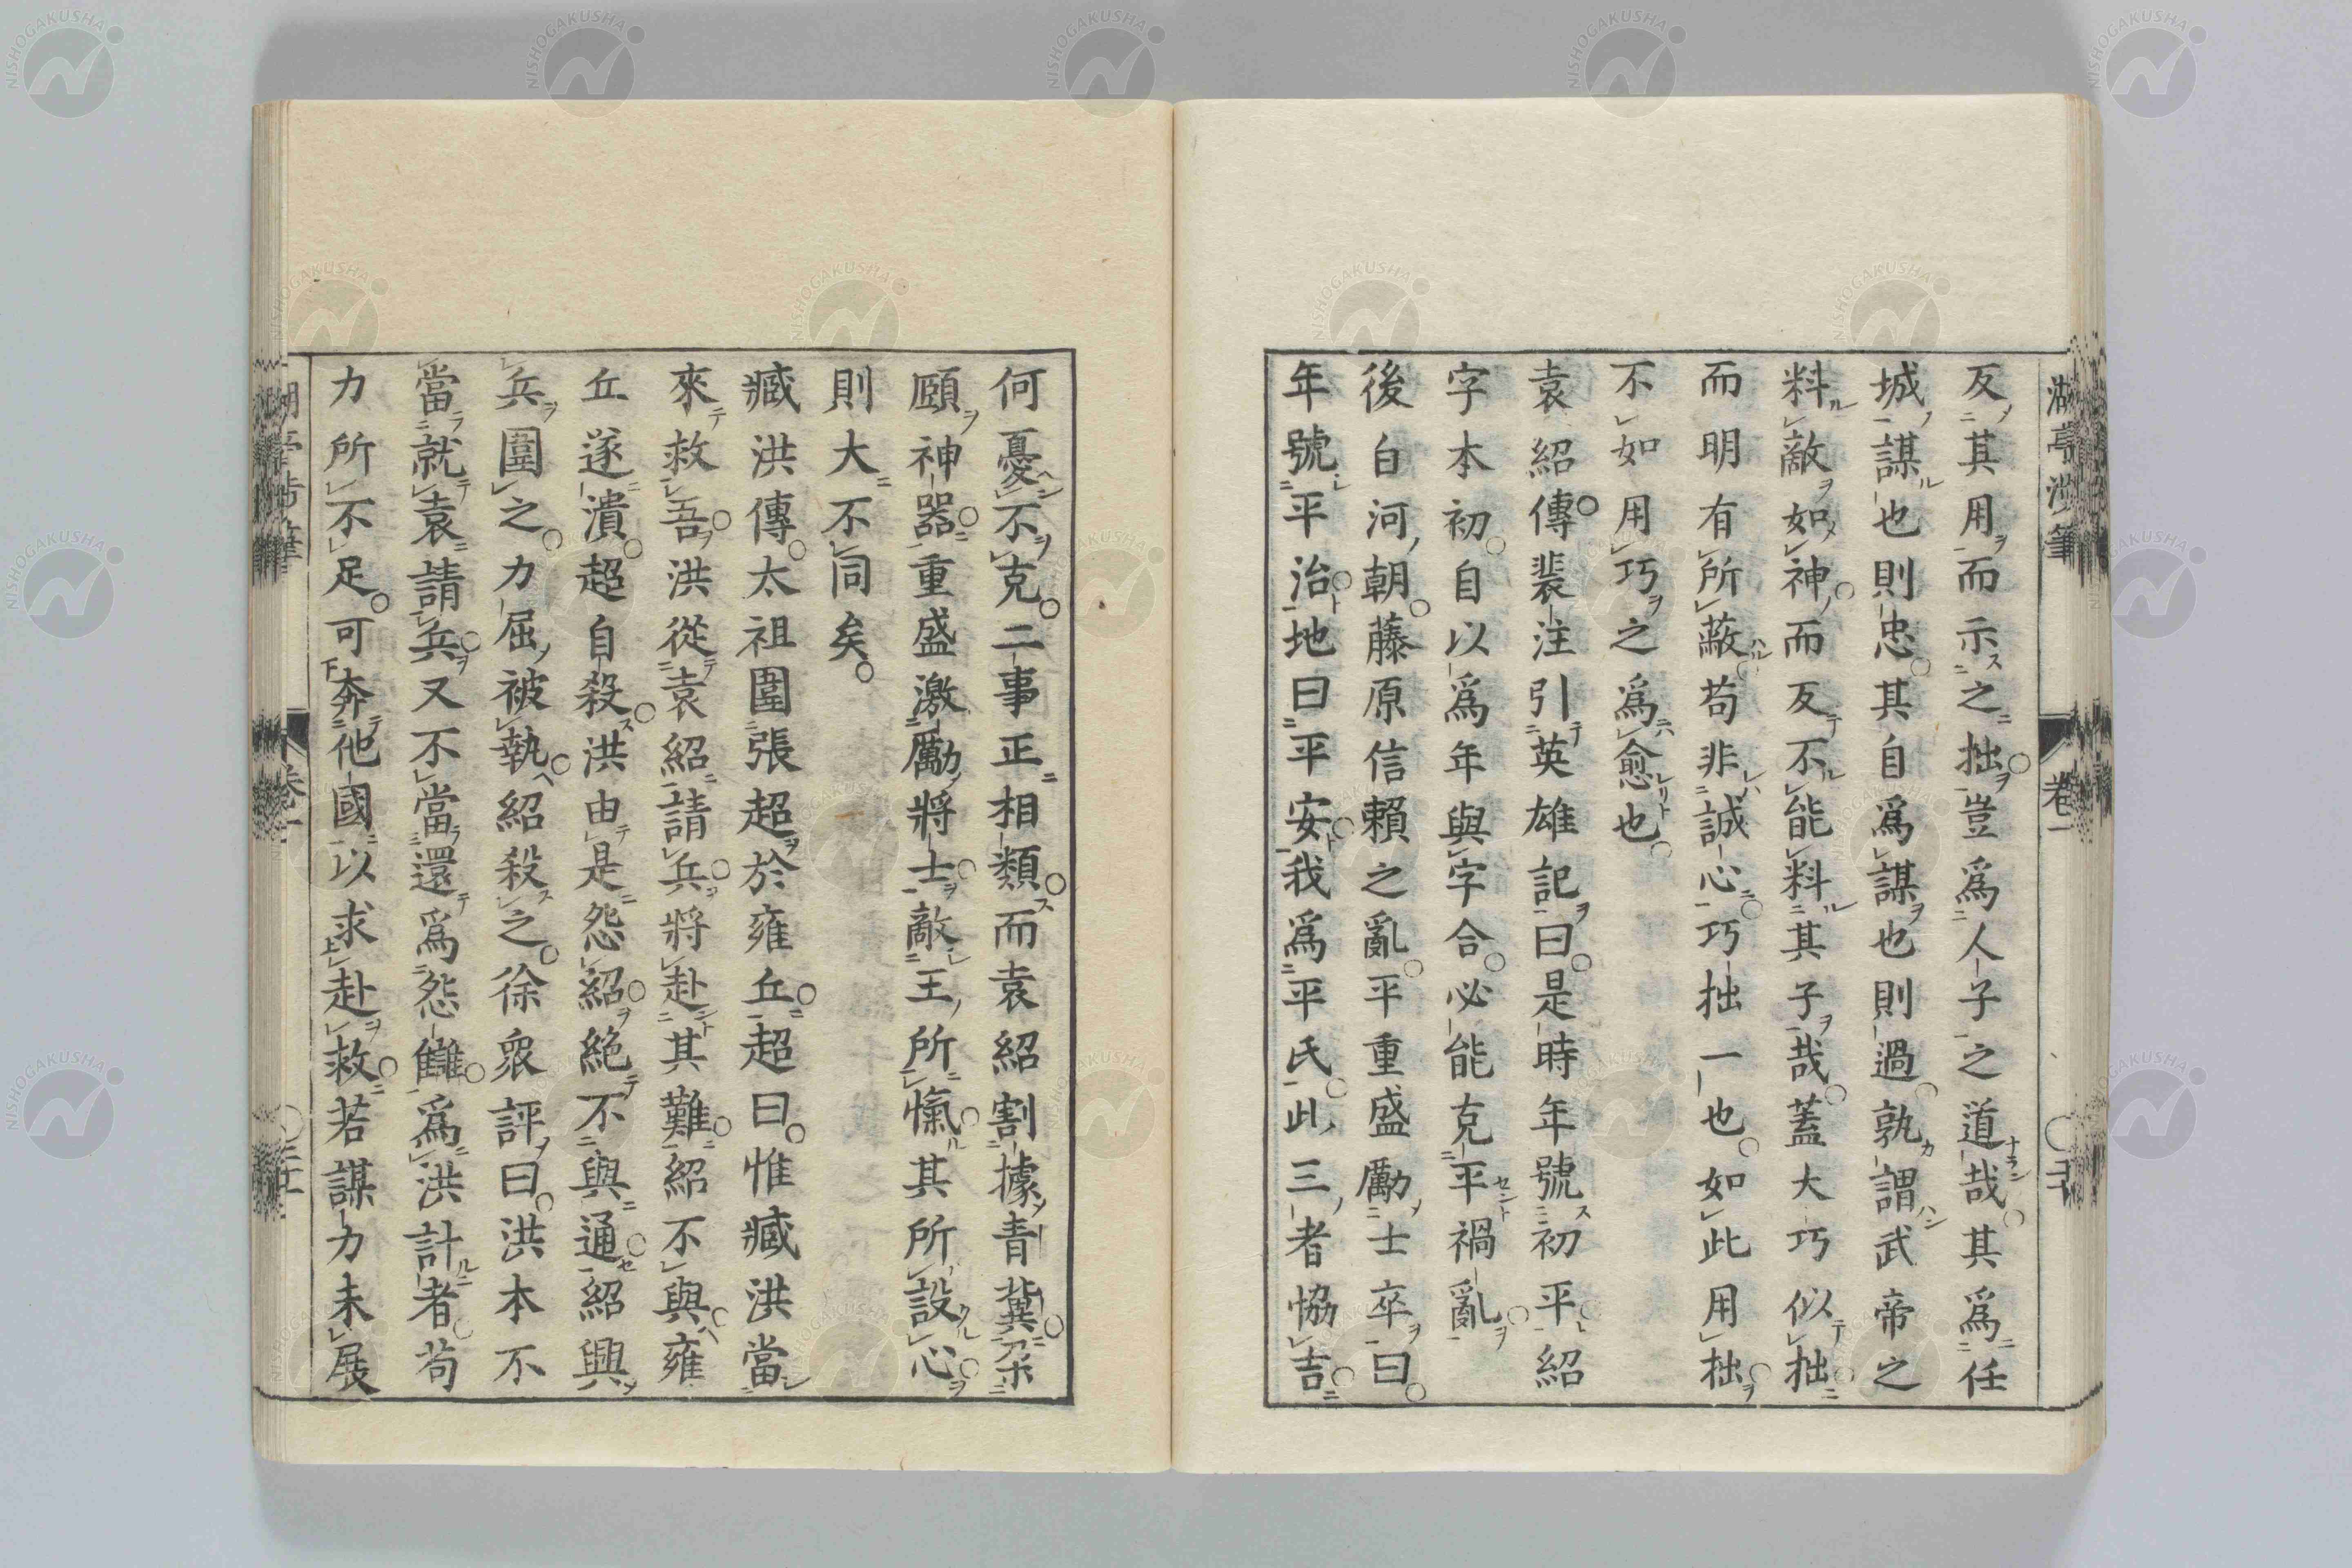 反其用而示之拙豈爲人子之道哉其爲任
城謀也則忠其自爲謀也則過孰謂武帝之
料敵如神而反不能料其子哉蓋大巧似拙
而明有所蔽苟非誠心巧拙一也如此用拙
不如用巧之爲愈也
袁紹傳裴注引英雄記曰是時年號初平紹
字本初自以爲年與字合必能克平禍亂
後白河朝藤原信賴之亂平重盛勵士卒曰
年號平治地曰平安我爲平氏此三者協吉
何憂不克二事正相類而袁紹割據青冀朶
頤神器重盛激勵將士敵王所愾其所設心
則大不同矣
臧洪傳太祖圍張超於雍丘超曰惟臧洪當
來救吾洪從袁紹請兵將赴其難紹不與雍
丘遂潰超自殺洪由是怨紹絶不與通紹興
兵圍之力屈被執紹殺之徐衆評曰洪本不
當就袁請兵又不當還爲怨讎爲洪計者苟
力所不足可奔他國以求赴救若謀力未展
卷一
NISHOGAKUSHA